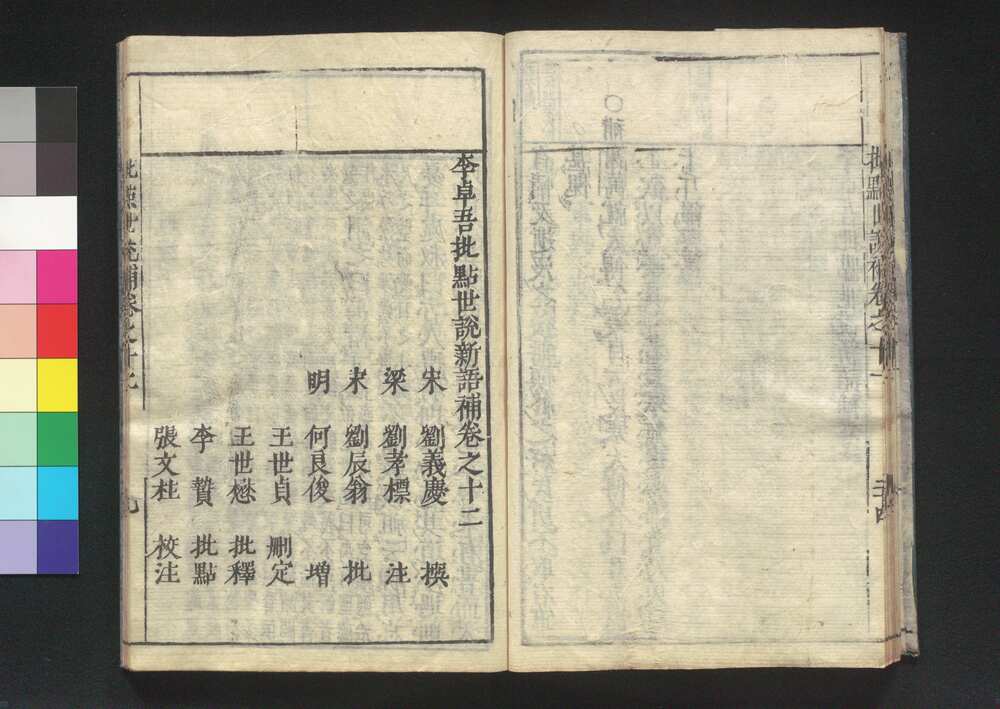 批點世說補卷之十一
三四
李卓吾批點世說新語補卷之十二
宋 劉義慶 撰
梁 劉孝標 注
宋 劉辰翁 批
明 何良俊 增
王世貞 刪定
王世懋 批釋
李 贄 批點
張文柱 校注
批點世說補卷之十二